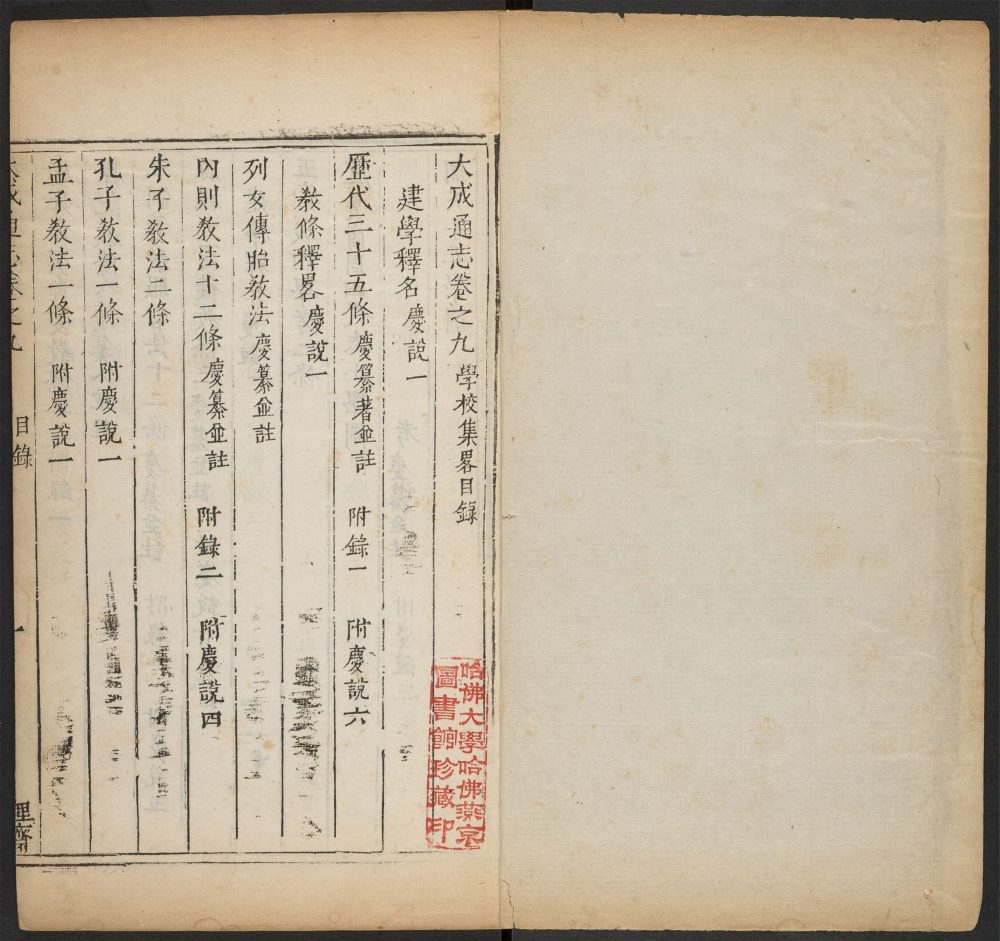 大成通志卷之九 學校集畧目錄
建學釋名慶說一
歷代三十五條慶纂著並註 附錄一 附慶說六
教條釋畧慶說一
列女傳胎教法慶纂並註
內則教法十二條慶纂並註 附錄二 附慶說四
朱子教法二條
孔子教法一條 附慶說一
孟子教法一條 附慶說一
大成通志卷之九 目錄 一 理齋
哈佛大學哈佛燕京
圖書館珍藏印